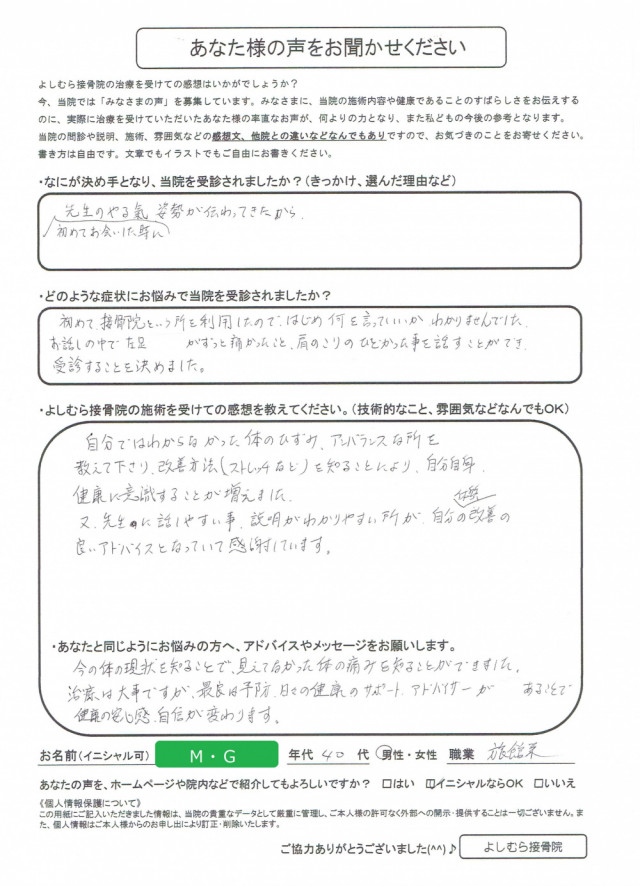 あなた様の声をお聞かせください
よしむら接骨院の治療を受けての感想はいかがでしょうか？
今、当院では「みなさまの声」を募集しています。みなさまに、当院の施術内容や健康であることのすばらしさをお伝えする
のに、実際に治療を受けていただいたあなた様の率直なお声が、何よりの力となり、また私どもの今後の参考となります。
当院の問診や説明、施術、雰囲気などの感想文、他院との違いなどなんでもありですので、お気づきのことをお寄せください。
書き方は自由です。文章でもイラストでもご自由にお書きください。
・なにが決め手となり、当院を受診されましたか？（きっかけ、選んだ理由など）
先生のやる氣 姿勢が伝わってきたから、
初めてお会いした時に
・どのような症状にお悩みで当院を受診されましたか？
初めて、接骨院という所を利用したので、はじめ何を言っていいか わかりませんでした。
お話しの中で 左足 がずっと痛かったこと、肩のこりのひどかった事を話すことができ、
受診することを決めました。
・よしむら接骨院の施術を受けての感想を教えてください。（技術的なこと、雰囲気などなんでもOK）
自分ではわからなかった 体のひずみ、アンバランスな所を
教えて下さり、改善方法（ストレッチなど）を知ることにより、自分自身、
健康に意識することが増えました。
又、先生に話しやすい事、説明がわかりやすい所が、自分の改善の
良いアドバイスとなっていて感謝しています。
・あなたと同じようにお悩みの方へ、アドバイスやメッセージをお願いします。
今の体の現状を知ることで、見えてなかった体の痛みを知ることができました。
治療は大事ですが、最良は予防、日々の健康のサポート、アドバイザーが あることで
健康の安心感、自信が変わります。
お名前（イニシャル可） M・G 年代 40 代 男性・女性 職業 旅館業
あなたの声を、ホームページや院内などで紹介してもよろしいですか？ □はい ☑イニシャルならOK □いいえ
《個人情報保護について》
この用紙にご記入いただきました情報は、当院の貴重なデータとして厳重に管理し、ご本人様の許可なく外部への開示・提供することは一切ございません。ま
た、個人情報はご本人様からのお申し出により訂正・削除いたします。
ご協力ありがとうございました(^^)♪ よしむら接骨院